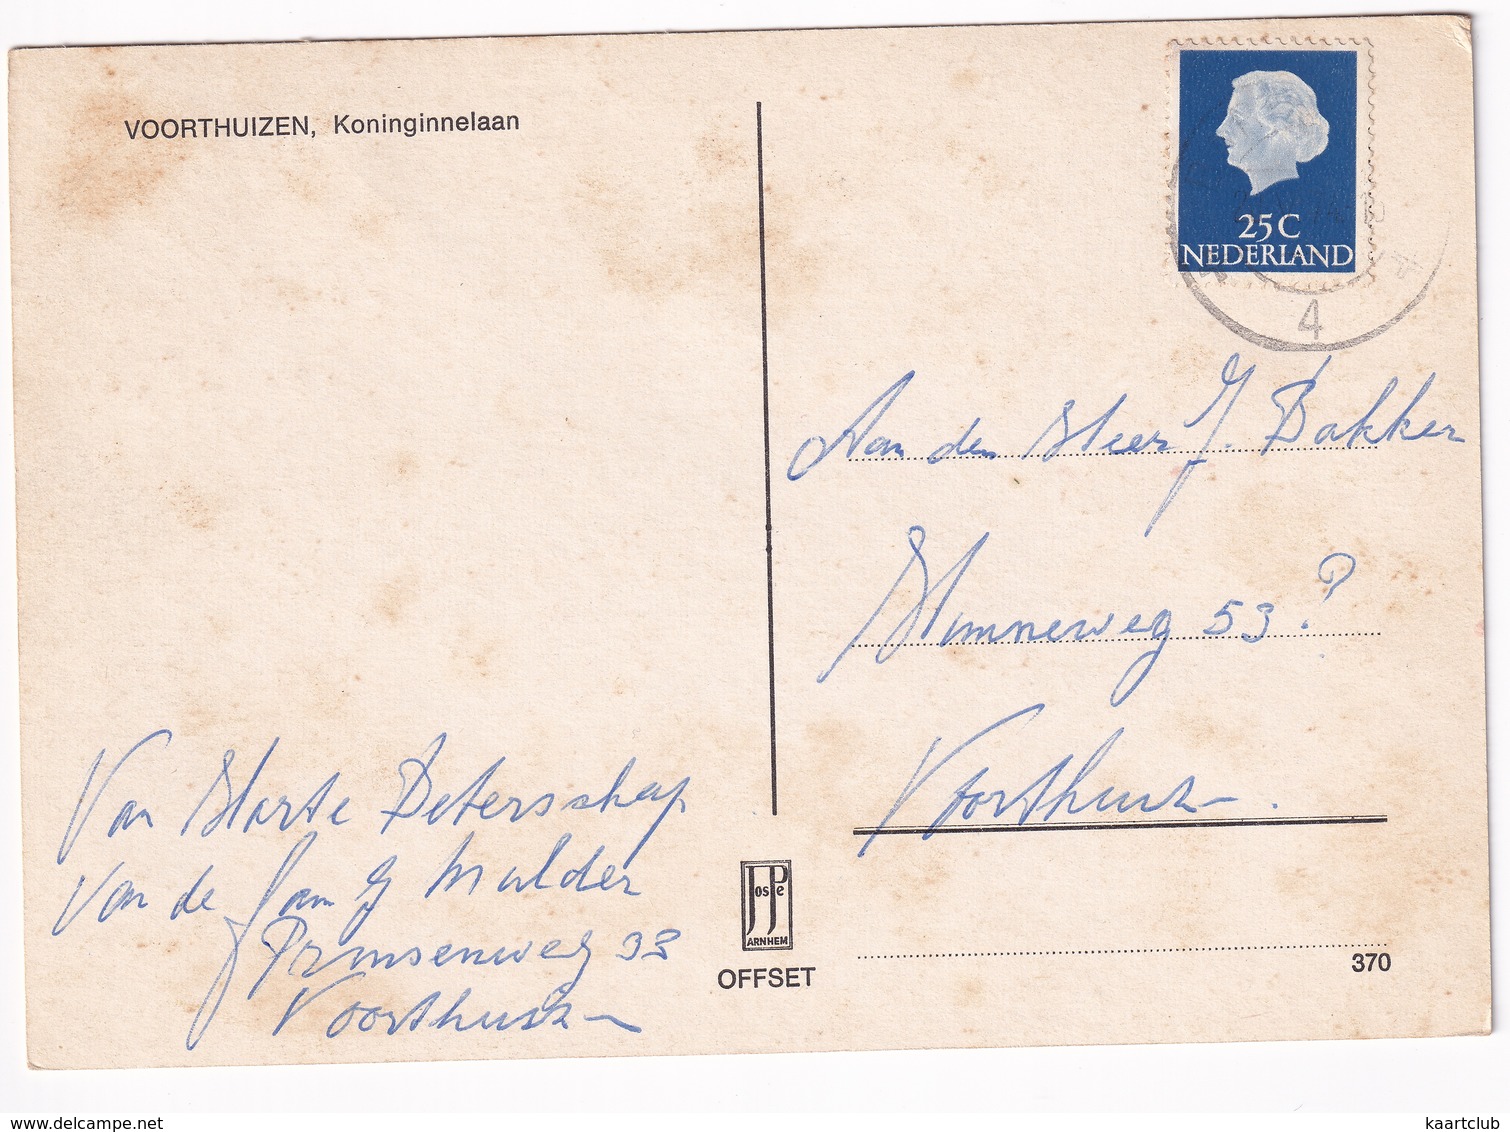 VOORTHUIZEN, Koninginnelaan
25 C
NEDERLAND
4
Aan den Heer J. Bakker
53 ?
Voorthuizen.
Van Harte Beterschap
Van de Fam G Mulder
Prinsenweg 33
Voorthuizen
JosPe
ARNHEM
OFFSET
370
www.delcampe.net
kaartclub